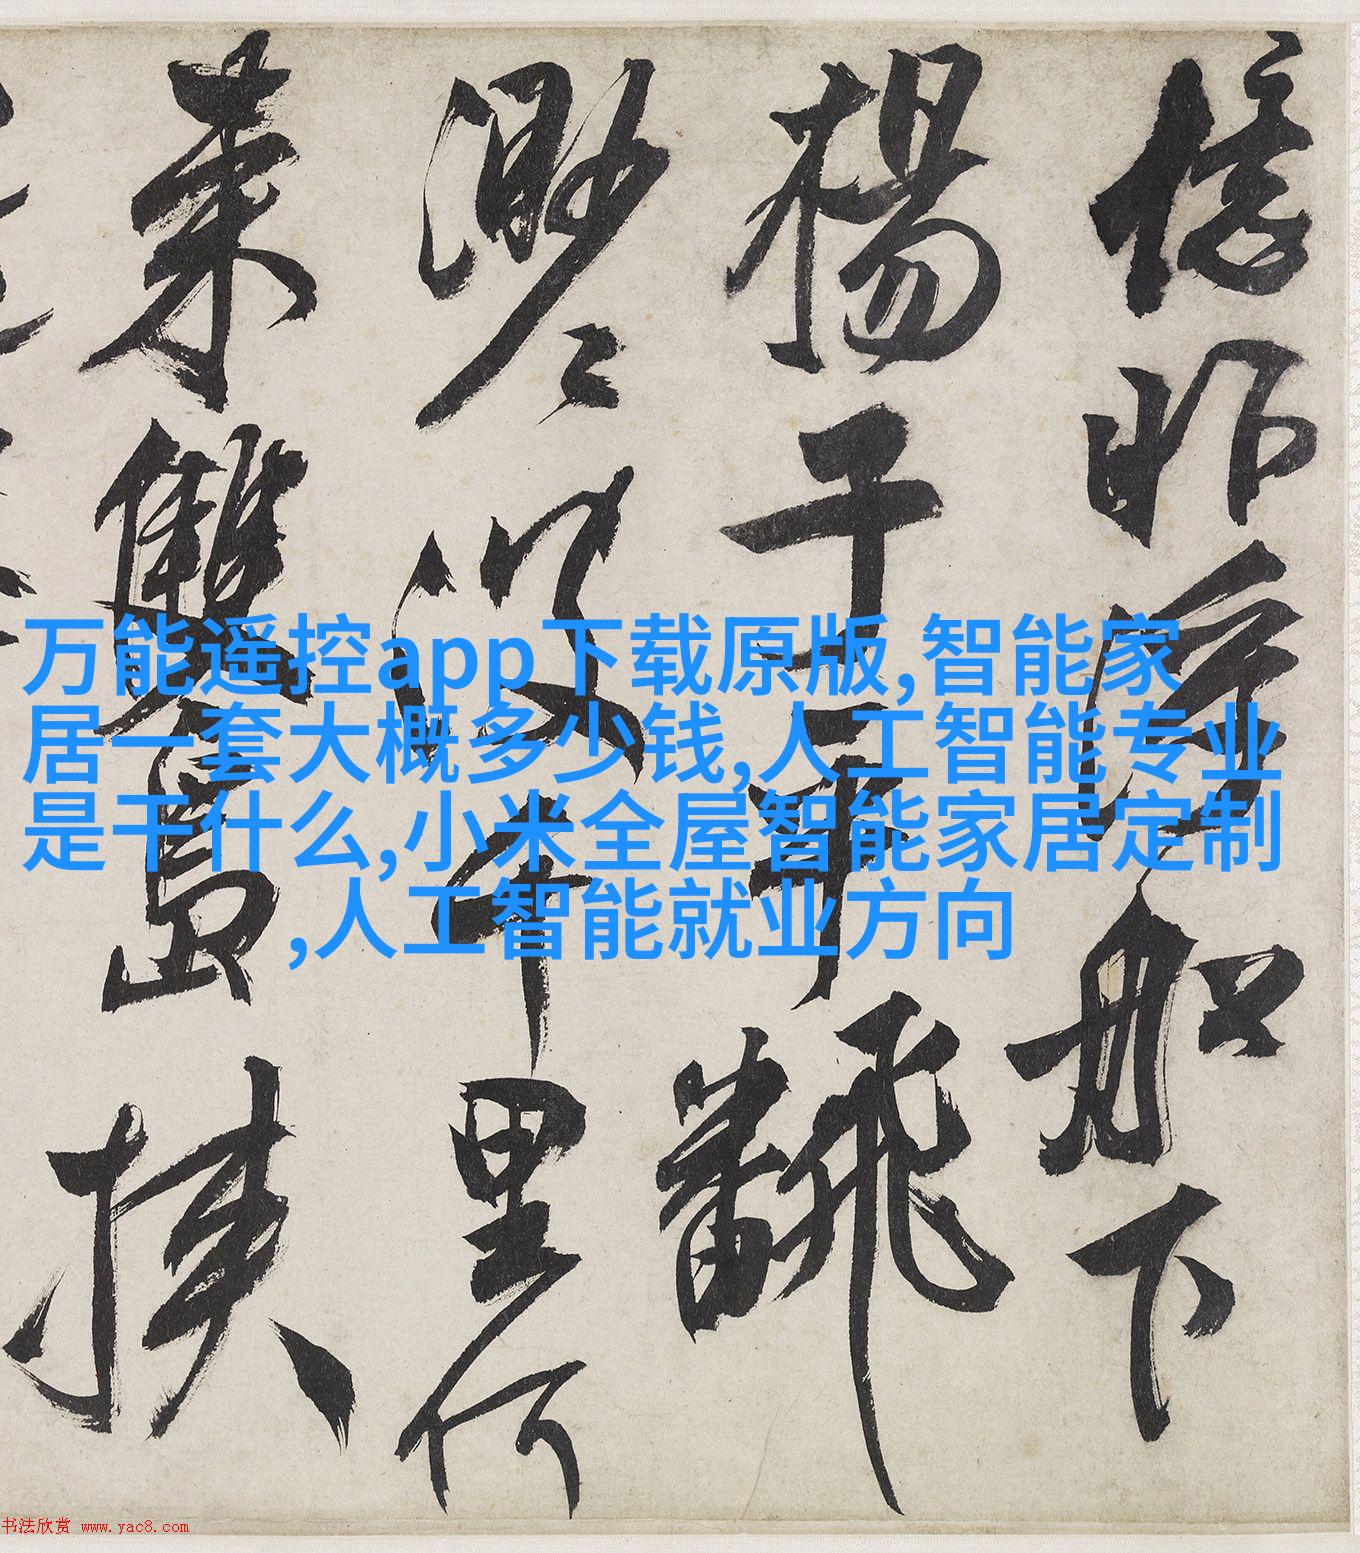 万能遥控app下载原版,智能家
居一套大概多少钱,人工智能专业
是干什么,小米全屋智能家居定制
,人工智能就业方向
昨 船下
楊 飜
里何
来雙島挟
书法欣赏 www.yac8.com